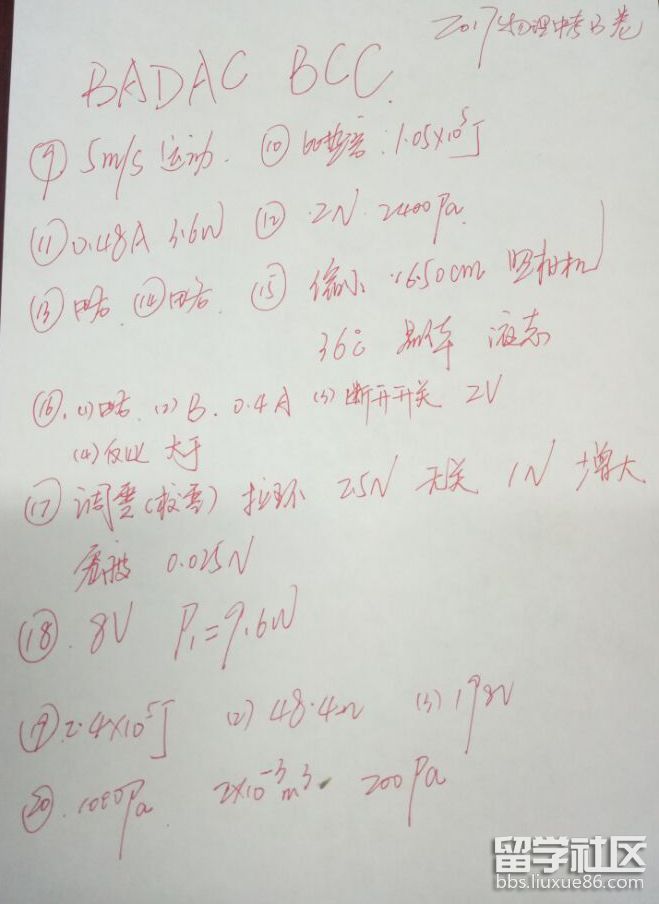 2017物理中考B卷
BADAC BCC.
⑨ 5m/s 运动. ⑩ 1.05×10⁵J
⑪ 0.48A 3.6W ⑫ 2N. 2400Pa.
⑬ 略. ⑭ 略. ⑮ 缩小 16.50cm 照相机
36℃ 晶体 液态
⑯. (1)略. (2) B. 0.4A (3) 断开开关 2V
(4) 反比 大于
⑰ 调零(校零) 拉环 2.5N 无关 1N 增大
0.025N
⑱. 8V P₁=9.6W
⑲. 2.4×10⁵J (2) 48.4Ω (3) 198V
⑳. 1000Pa. 2×10⁻³m³. 200Pa
留学社区
bbs.liuxue86.com